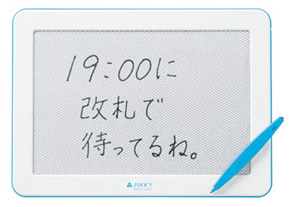 19:00に
改札で
待ってるね。
JIKKY